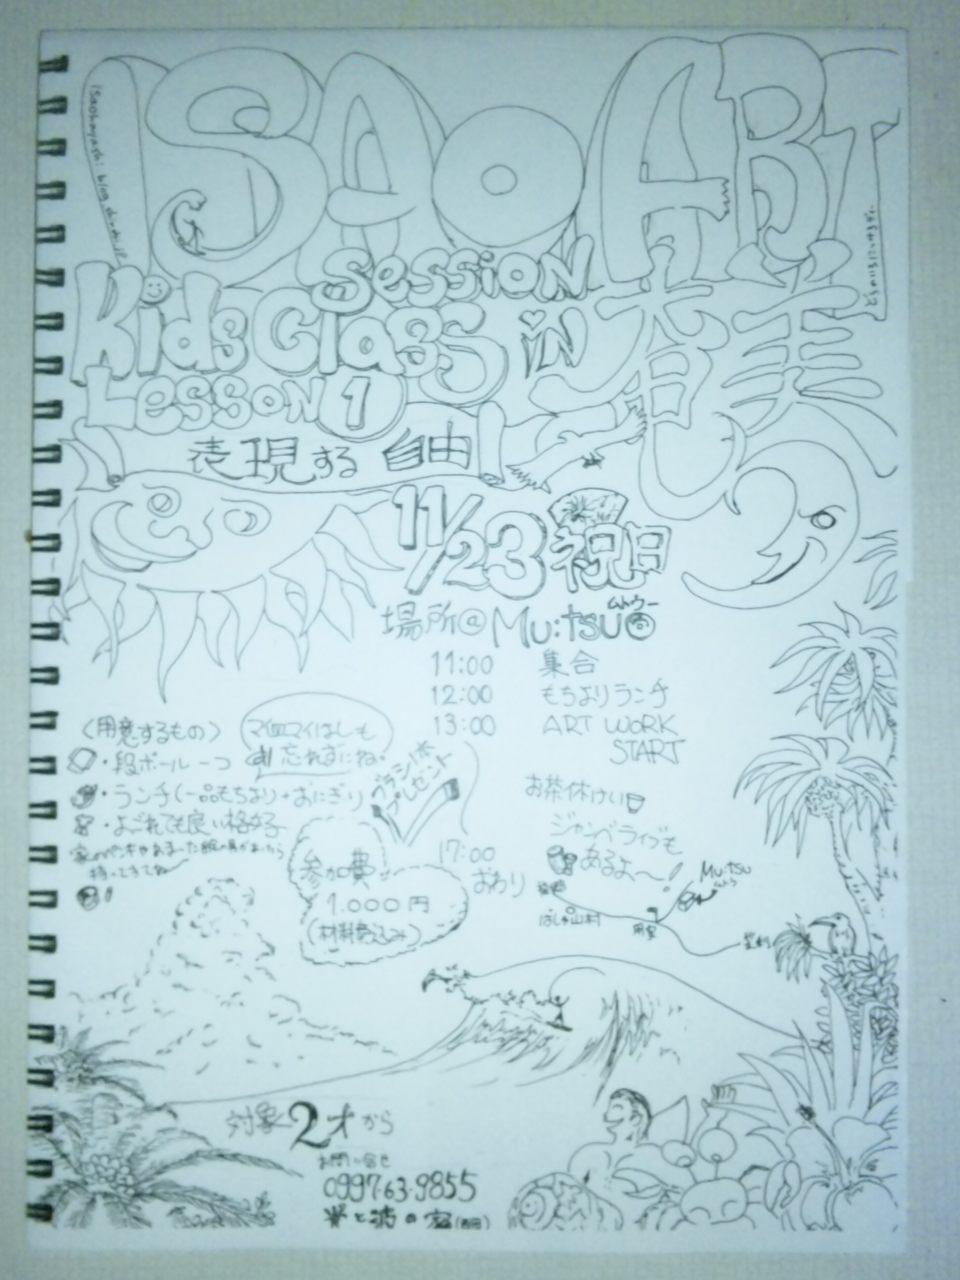 ISAO ART
Session
Kids Class in 奄美
Lesson 1
表現する 自由
11/23 祝日
ムトウー
場所@ Mu:tsu
11:00 集合
12:00 もちよりランチ
13:00 ART WORK
START
〈用意するもの〉
・段ボール一つ
・ランチ(一品もちより+おにぎり
・よごれても良い格好
マイ皿マイはしも
忘れずにね。
ブラシ1本
プレゼント
お茶休けい
ジャンベライブも
あるよ〜!
17:00
おわり
参加費
1.000円
(材料費込み)
Mu:tsu
ばしゃ山村
対象 2才から
お問い合せ
0997.63.9855